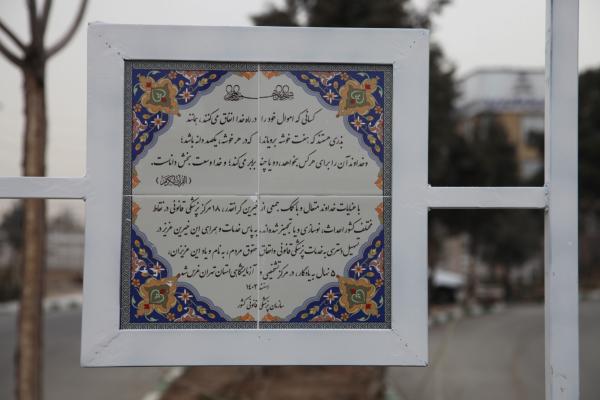 کسانی که اموال خود را در راه خدا انفاق می‌کنند، همانند
بذری هستند که هفت خوشه برویاند که در هر خوشه، یکصد دانه باشد؛
و خداوند آن را برای هر کس بخواهد، دو یا چند برابر می‌کند؛ و خدا وسعت بخش داناست.
با عنایات خداوند متعال و با کمک جمعی از خیرین گرانقدر، ۱۸ مرکز پزشکی قانونی در نقاط
مختلف کشور احداث، نوسازی و یا تجهیز شده‌اند. به پاس خدمات و همراهی این خیرین عزیز در
تسهیل دسترسی به خدمات پزشکی قانونی و احقاق حقوق مردم، به نام و یاد این عزیزان،
۵ نهال به یادگار، در مرکز تشخیصی و آزمایشگاهی استان تهران غرس شد.
اسفند ۱۴۰۲
سازمان پزشکی قانونی کشور